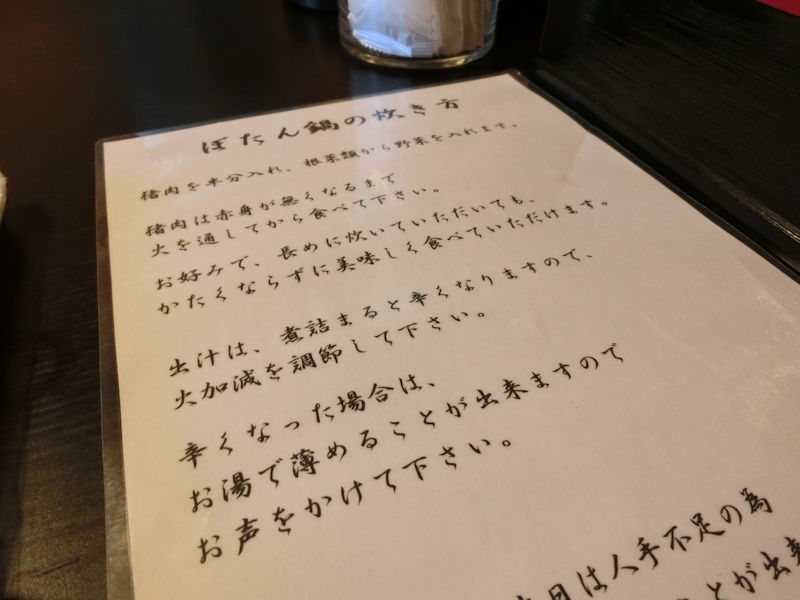 ぼたん鍋の炊き方
猪肉を半分入れ、根菜類から野菜を入れます。
猪肉は赤身が無くなるまで
火を通してから食べて下さい。
お好みで、長めに炊いていただいても、
かたくならずに美味しく食べていただけます。
出汁は、煮詰まると辛くなりますので、
火加減を調節して下さい。
辛くなった場合は、
お湯で薄めることが出来ますので
お声をかけて下さい。
日は人手不足の為
とが出来